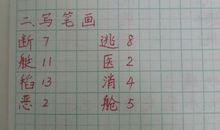 二、写笔画
断 7 逃 8
艇 11 医 2
稻 13 消 4
恶 2 舱 5